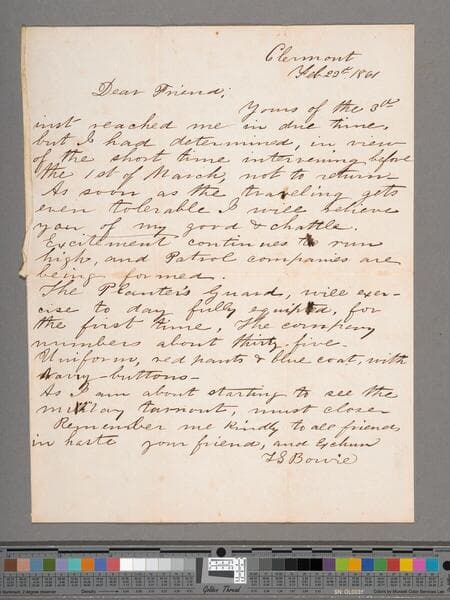 Clermont
Feb. 22d. 1861
Dear Friend,
Yours of the 3d.
inst reached me in due time,
but I had determined, in view
of the short time intervening before
the 1st of March, not to return—
As soon as the traveling gets
even tolerable I will relieve
you of my good & chattle.
Excitement continues to run
high, and Patrol companies are
being formed.
The Planter's Guard, will exer-
cise to day fully equipted, for
the first time, The company
numbers about thirty-five—
Uniform, red pants & blue coat, with
Navy buttons—
As I am about starting to see the
military turnout, must close—
Remember me kindly to all friends
in haste your friend, and
Bowie
Golden Thread